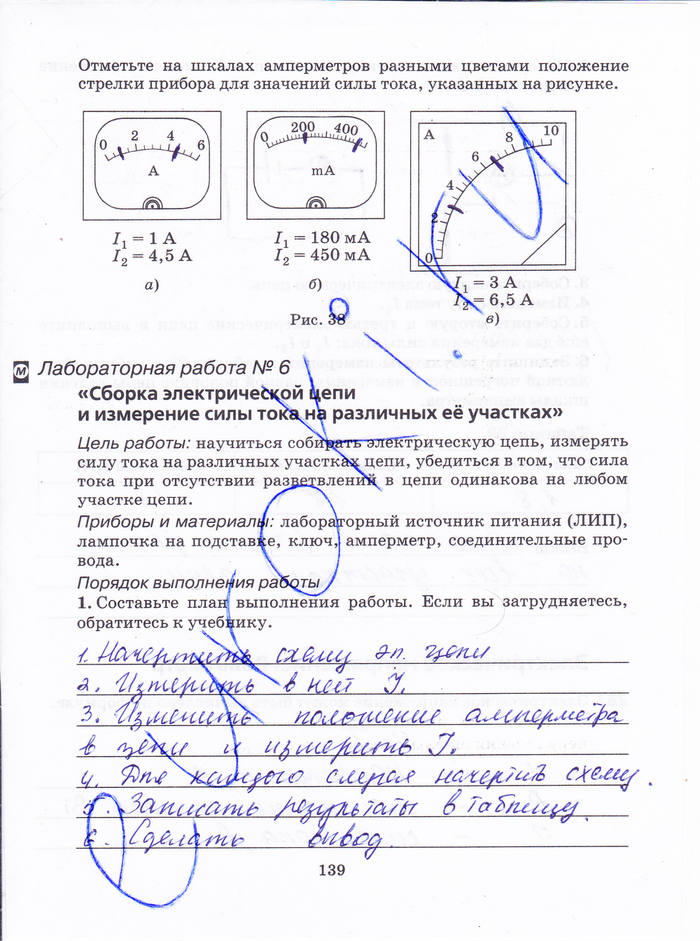 Отметьте на шкалах амперметров разными цветами положение
стрелки прибора для значений силы тока, указанных на рисунке.
0 2 4 6
A
0 200 400
mA
A
0 2 4 6 8 10
I₁ = 1 А
I₂ = 4,5 А
а)
I₁ = 180 мА
I₂ = 450 мА
б)
I₁ = 3 А
I₂ = 6,5 А
в)
Рис. 38
М Лабораторная работа № 6
«Сборка электрической цепи
и измерение силы тока на различных её участках»
Цель работы: научиться собирать электрическую цепь, измерять
силу тока на различных участках цепи, убедиться в том, что сила
тока при отсутствии разветвлений в цепи одинакова на любом
участке цепи.
Приборы и материалы: лабораторный источник питания (ЛИП),
лампочка на подставке, ключ, амперметр, соединительные про-
вода.
Порядок выполнения работы
1. Составьте план выполнения работы. Если вы затрудняетесь,
обратитесь к учебнику.
1. Начертить схему эл. цепи
2. Измерить в ней I.
3. Изменить положение амперметра
в цепи и измерить I.
4. Для каждого случая начертить схему.
5. Записать результаты в таблицу.
6. Сделать вывод.
139